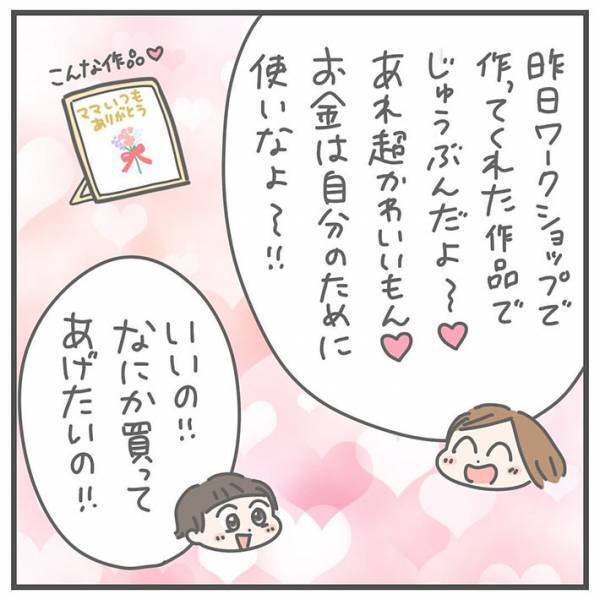 昨日ワークショップで
作ってくれた作品で
じゅうぶんだよ〜♥
あれ超かわいいもん♥
お金は自分のために
使いなよ〜!!
こんな作品♡
ママいつも
ありがとう
いいの!!
なにか買って
あげたいの!!